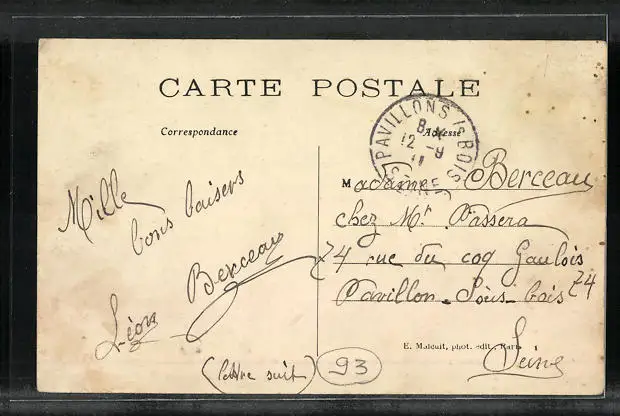 CARTE POSTALE
Correspondance
Adresse
PAVILLONS Is BOIS
12 -9
11
SEINE
Mille
bons baisers
Berceau
Léon
(lettre suit)
93
Madame Berceau
chez Mr. Passera
74 rue du coq Gaulois
Pavillon-Sous-bois 74
Seine
E. Malcuit, phot. édit., Paris